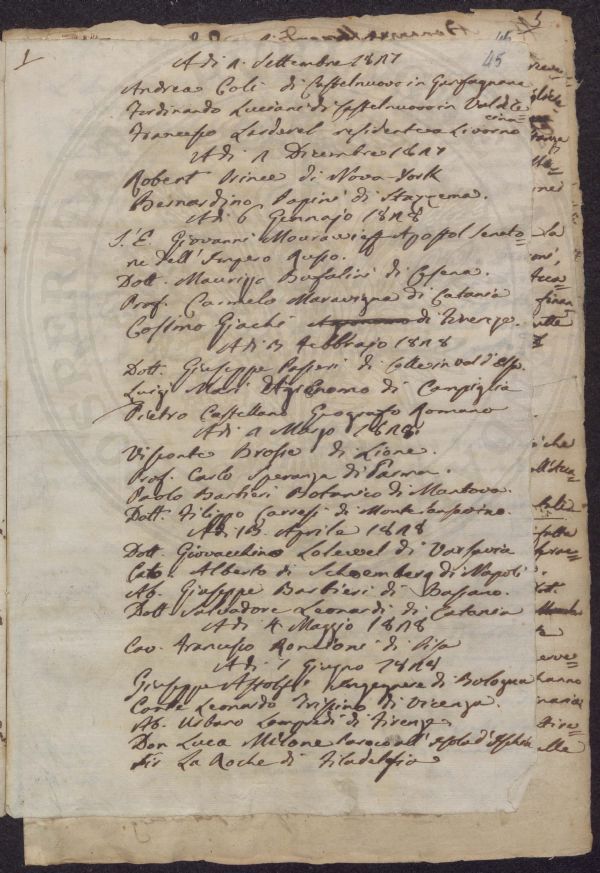 1
45
A di 2. Settembre 1827
Andrea Coli di Castelnuovo in Garfagnana
Ferdinando Luciani di Castelnuovo in Val di Ce
cina
Francesco Larderel residente a Livorno
A di 2 Dicembre 1827
Robert Prince di Nova-York
Bernardino Papini di Stazzema.
A di 6 Gennajo 1828
S. E. Giovanni Mouravieff Apostol Senato=
re dell'Impero Russo.
Dott. Maurizio Bufalini di Cesena.
Prof. Carmelo Maravigna di Catania
Cosimo Giachi di Firenze.
A di 3 Febbrajo 1828
Dott. Giuseppe Passeri di Colle in val d'Elsa.
Luigi Masi Agronomo di Campiglia
Pietro Castellano Geografo Romano
A di 2 Marzo 1828
Visconte Brosse di Lione.
Prof. Carlo Speranza di Parma.
Paolo Barbieri Botanico di Mantova.
Dott. Filippo Carresi di Monte Sansavino.
A di 13 Aprile 1828
Dott. Giovacchino Lelewel di Varsavia
Cav. Alberto di Schoemberg di Napoli
Ab. Giuseppe Barbieri di Bassano.
Dott. Salvadore Leonardi di Catania
A di 4 Maggio 1828
Cav. Francesco Roncioni di Pisa
A di 1 Giugno 1828
Giuseppe Astolfi Ingegnere di Bologna
Conte Leonardo Trissino di Vicenza.
Ab. Urbano Lampredi di Firenze
Don Luca Milone Paroco all'Isola d'Ischia
Sir La Roche di Filadelfia